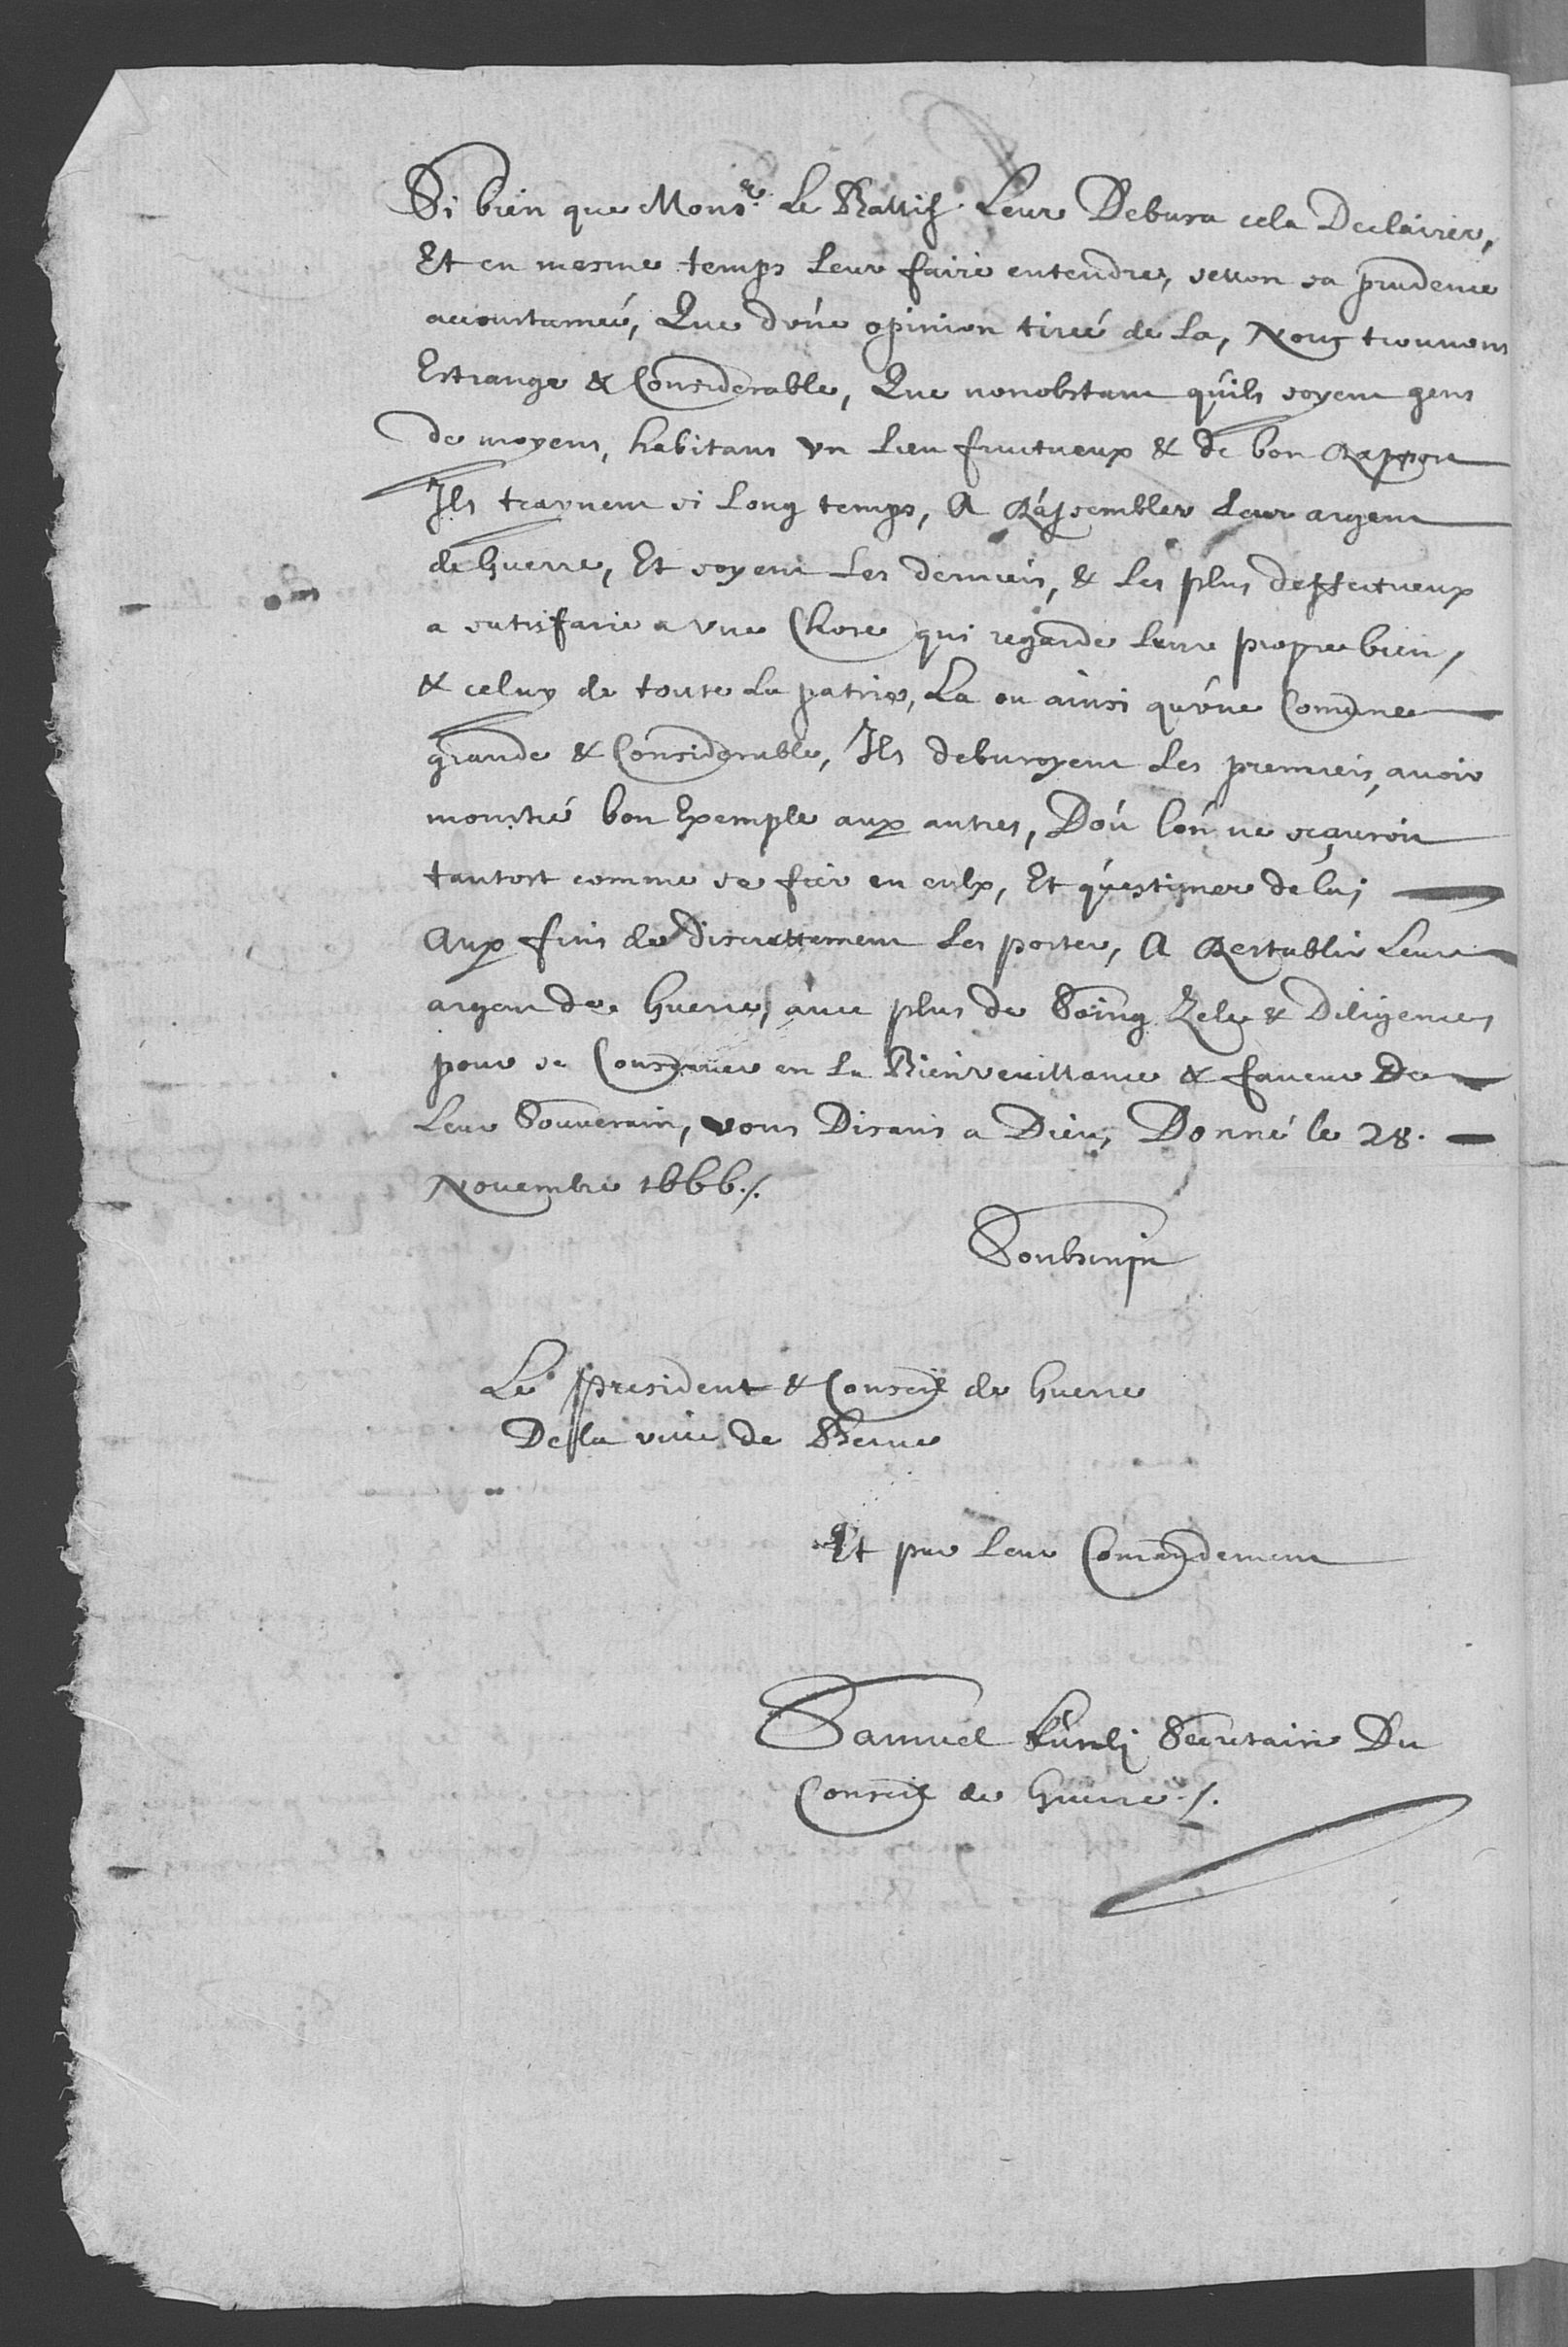 Si bien que Monsr. Le Ballif. Leur Debura cela Declairer,
Et en mesme temps leur faire entendre, sellon sa prudence
accoustumeé, Que d'úne opinion tireé de la, Nous trouvons
Estrange & Considerable, Que nonobstant qu'ils soyent gens
de moyens, habitans vn Lieu fructueux & de bon Rapport
Ils tearuent si Long temps, A R'assembler Leur argent
de Guerre, Et soyent Les derniers, & les plus deffectueux
a satisfaire a vne Chose qui regarde leur propre bien,
& celuy de toute La patrie, La ou ainsi qu'úne Comune
grande & Considerable, Ils deburoyent les premiers, avoir
monstré bon Exemple aux autres, D'oú l'on ne sçauroit
tantost comme se fier en eulx, Et qu'estimer de la;
Aux fins de Discrettement les porter, A Restablir Leur
argent de Guerre, avec plus de Soing Zele & Diligence,
pour se Conserver en La Bienveuillance & faveur De
Leur Souverain, vous Disans a Dieu, Donné le 28.
Novembre 1666./.
Le President & Conseil de Guerre
De la ville de Berne
Et par Leur Comandement
Samuel Secretaire Du
Conseil de Guerre ./.